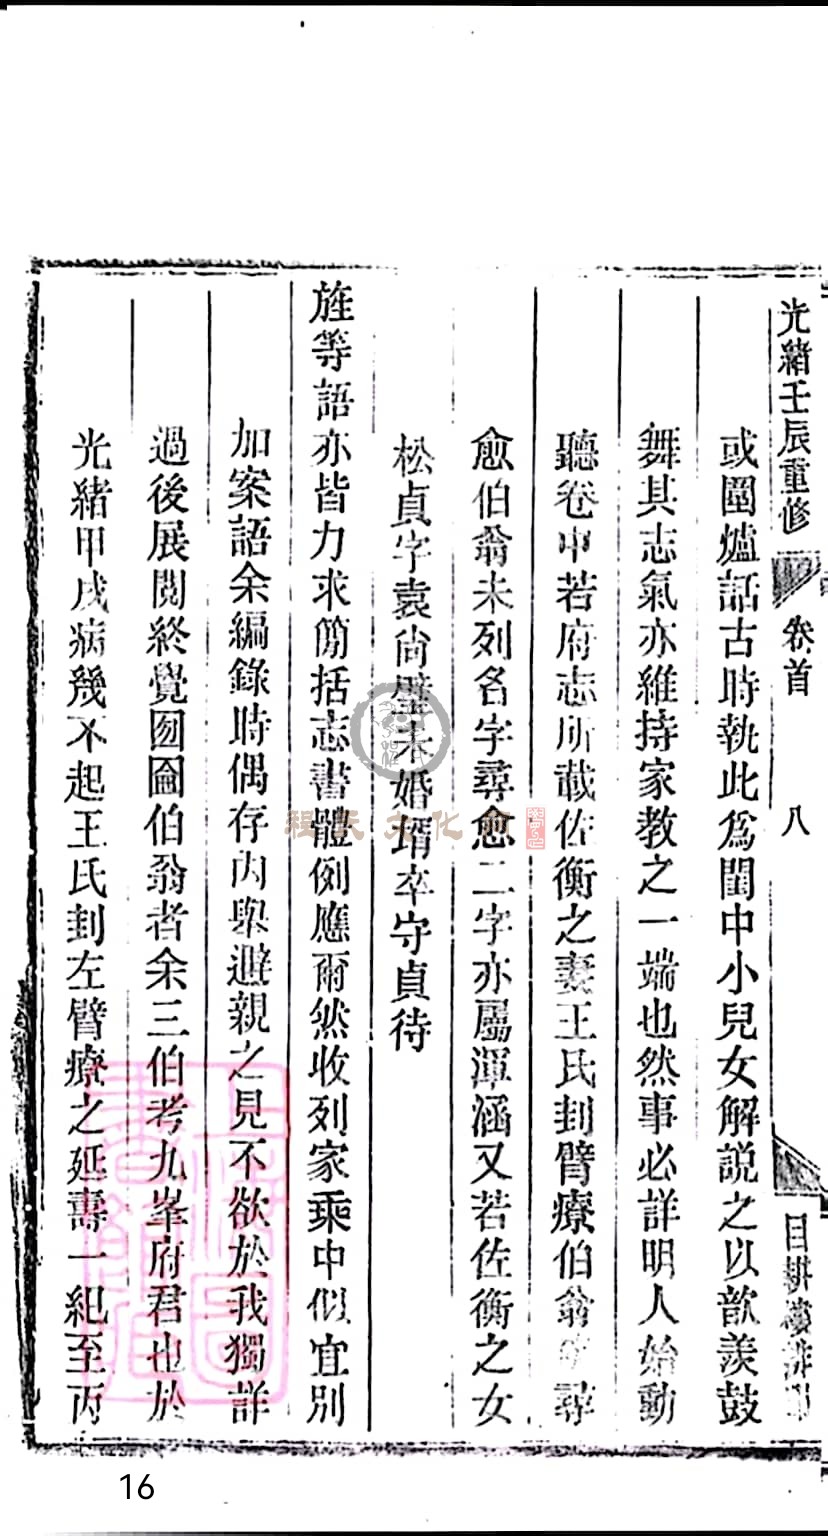 光緒壬辰重修
卷首
八
目耕樓排印
或圍爐話古時執此爲閨中小兒女解説之以歆羨鼓
舞其志氣亦維持家教之一端也然事必詳明人始動
聽卷中若府志所載佐衡之妻王氏刲臂療伯翁 尋
愈伯翁未列名字尋愈二字亦屬渾涵又若佐衡之女
松貞字袁尙璧未婚壻卒守貞待
旌等語亦皆力求簡括志書體例應爾然收列家乘中似宜別
加案語余編錄時偶存內舉避親之見不欲於我獨詳
過後展閱終覺囫圇伯翁者余三伯考九峯府君也於
光緒甲戌病幾不起王氏刲左臂療之延壽一紀至丙
16